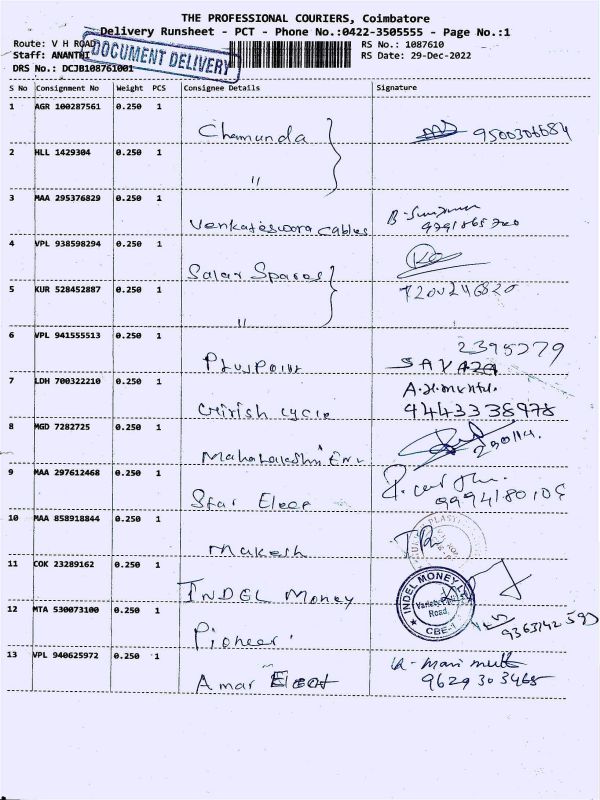 THE PROFESSIONAL COURIERS, Coimbatore
Delivery Runsheet - PCT - Phone No.:0422-3505555 - Page No.:1
Route: V H ROAD
RS No.: 1087610
Staff: ANANTHI
DOCUMENT DELIVERY
RS Date: 29-Dec-2022
DRS No.: DCJB108761001
S No Consignment No Weight PCS Consignee Details Signature
1 AGR 100287561 0.250 1
Chamunda 9500306684
2 HLL 1429304 0.250 1
"
3 MAA 295376829 0.250 1
Venkateswara cables
4 VPL 938598294 0.250 1
Salar Spares
5 KUR 528452887 0.250 1 7200246820
"
6 VPL 941555513 0.250 1 2395279
Pluspoint
7 LDH 700322210 0.250 1
Girish cycle 9443338978
8 MGD 7282725 0.250 1
Mahalakshmi
9 MAA 297612468 0.250 1
Star Elecp
10 MAA 858918844 0.250 1
Mukesh
11 COK 23289162 0.250 1
INDEL Money
INDEL MONEY
Road,
CBE-1
12 MTA 530073100 0.250 1
Pioneer
13 VPL 940625972 0.250 1
Amar Elect 9629303465